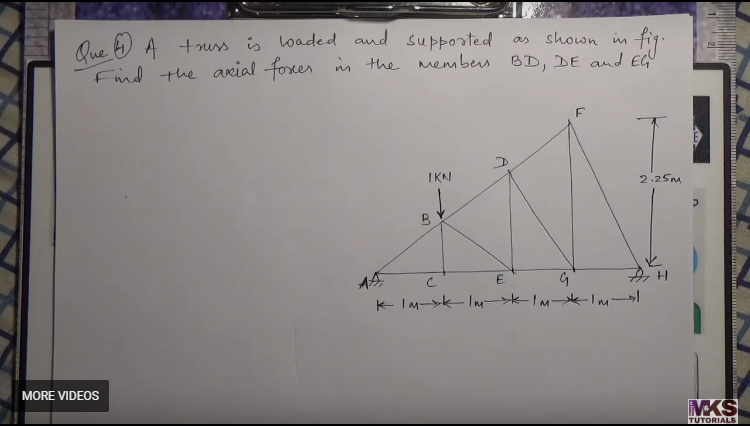 Que 4 A truss is loaded and supported as shown in fig.
Find the axial forces in the members BD, DE and EG
F
D
1KN
2.25m
B
A C E G H
1m 1m 1m 1m
MORE VIDEOS
MKS
TUTORIALS